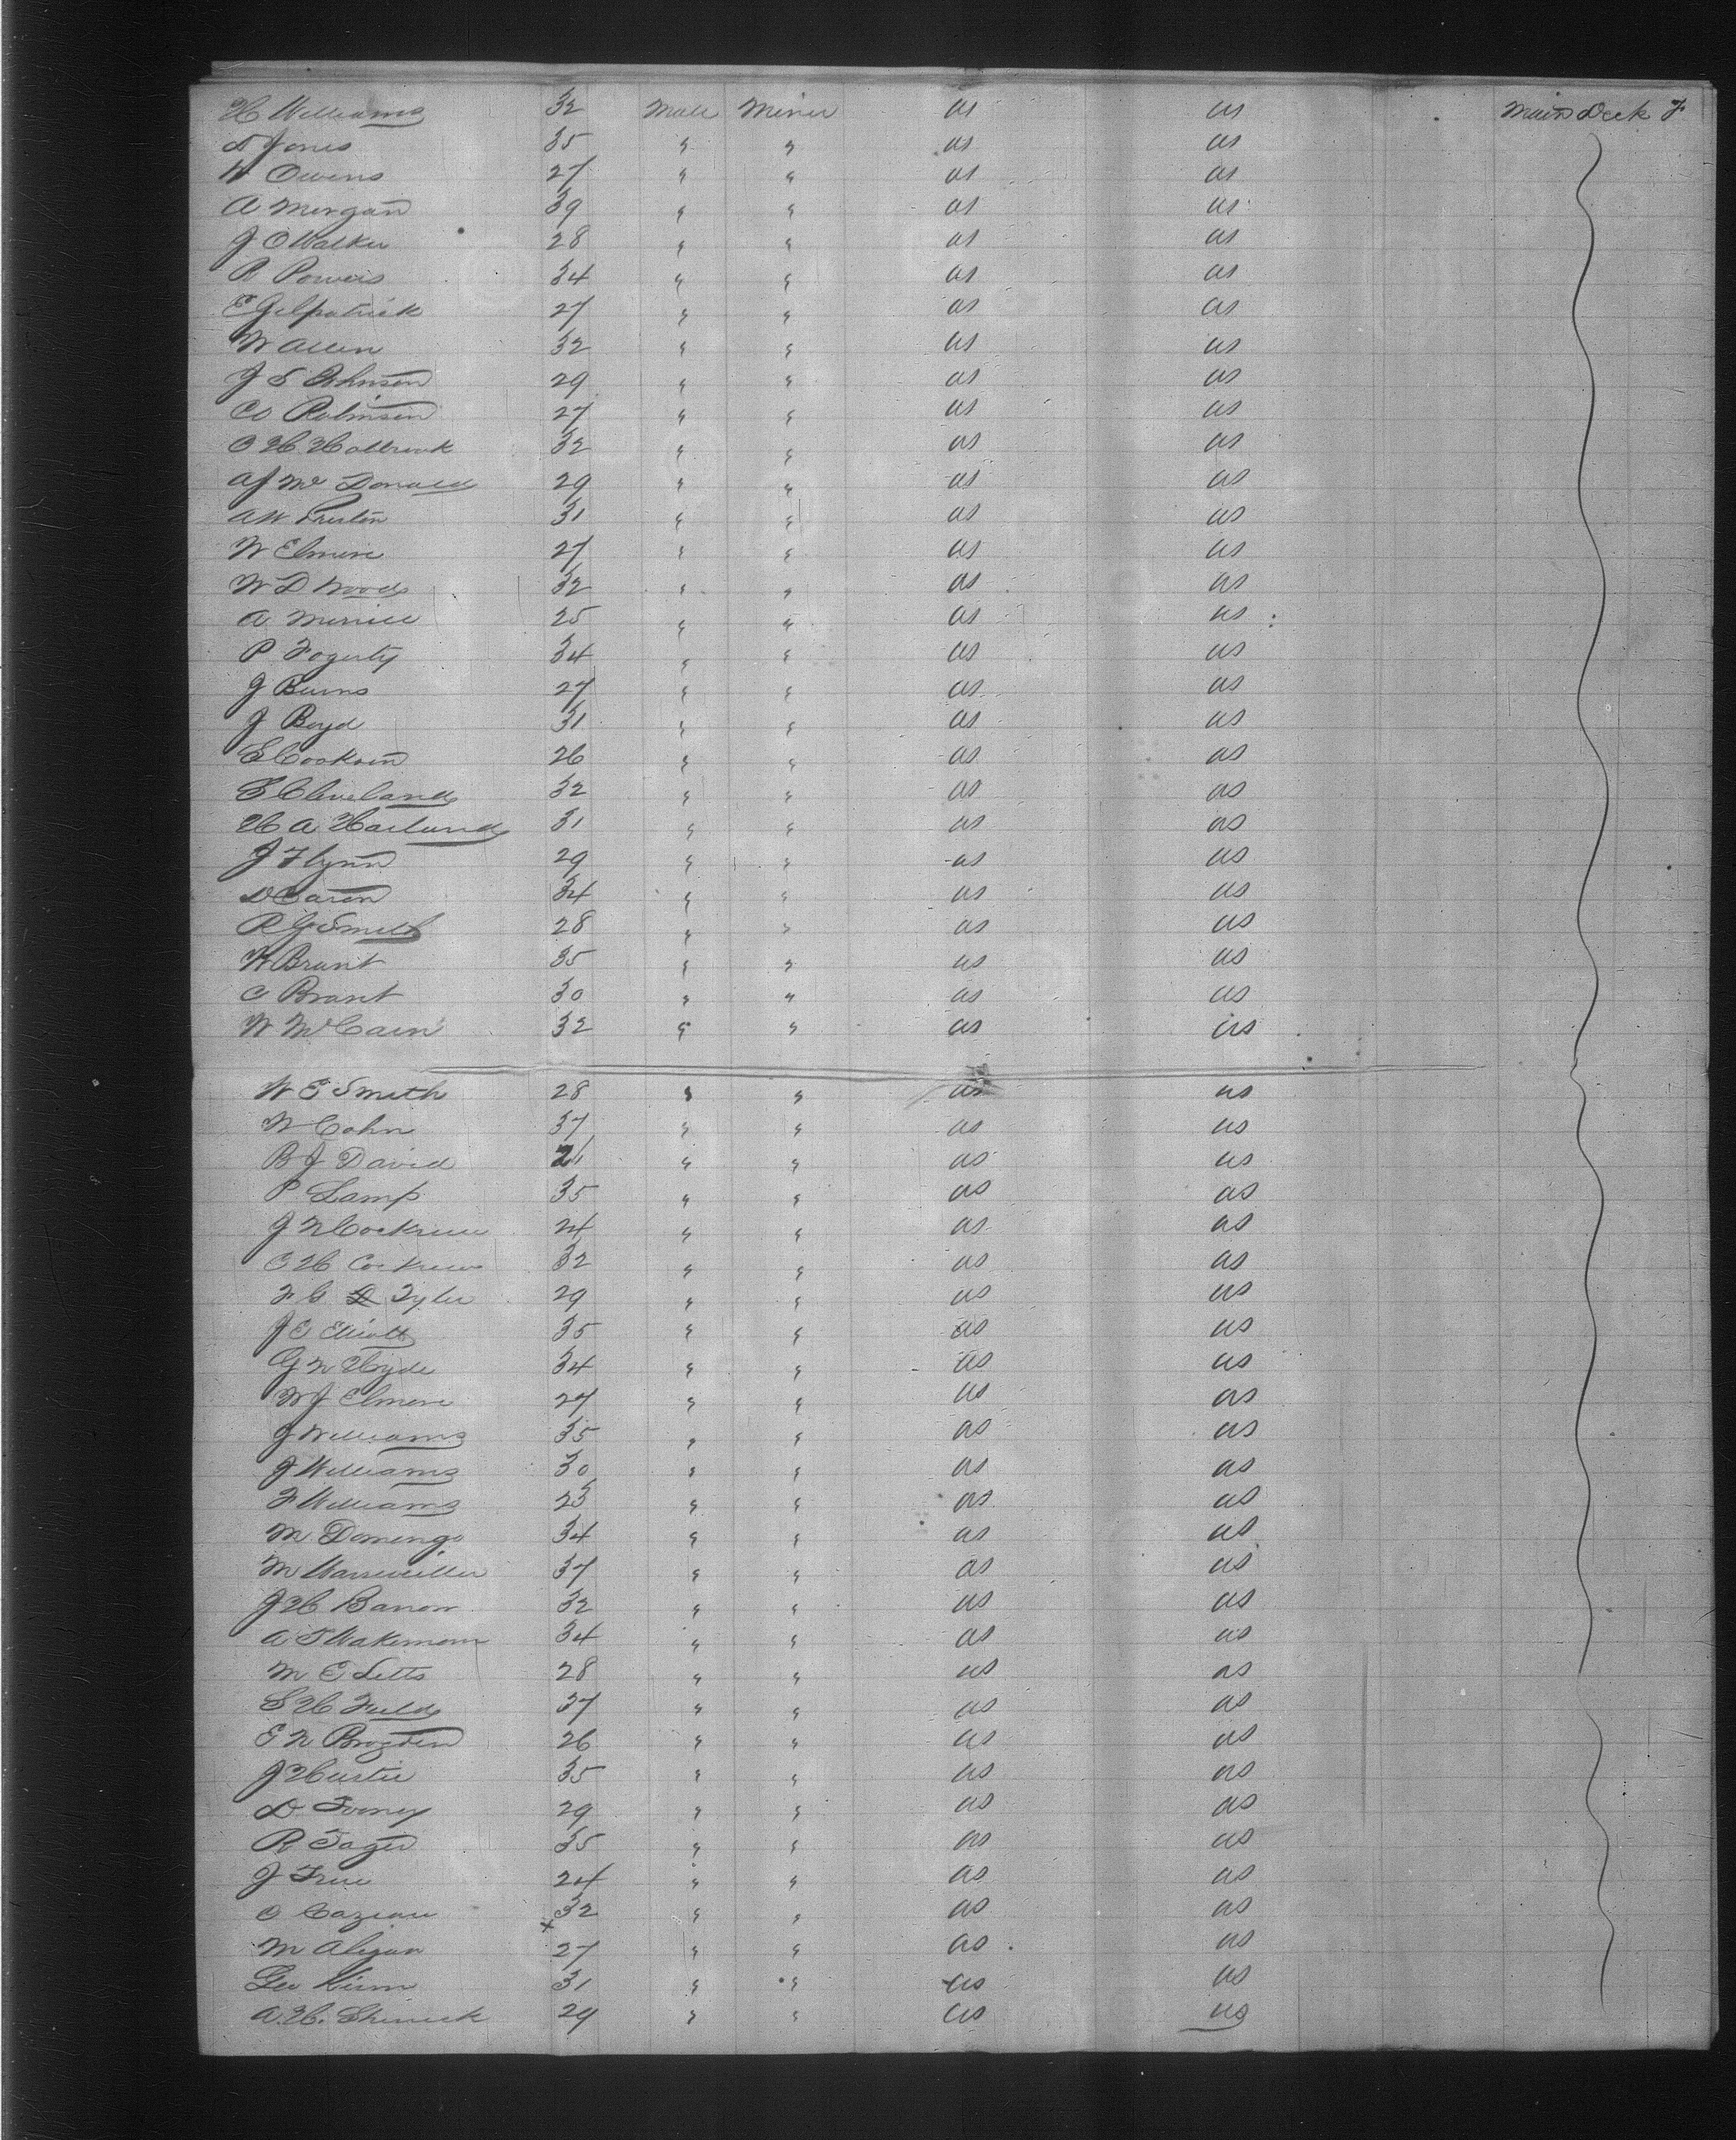 H Williams 32 Male Miner US US Main Deck F
D Jones 35 " " US US
W Owens 27 " " US US
A Morgan 39 " " US US
J O Walker 28 " " US US
P Powers 34 " " US US
E Gelpatrick 27 " " US US
W Allen 32 " " US US
J S Johnson 29 " " US US
CO Robinson 27 " " US US
O H Holbrook 32 " " US US
AJ Mc Donald 29 " " US US
AW Preston 31 " " US US
W Elmore 27 " " US US
W D Woods 32 " " US US
A Merrill 25 " " US US
P Fogerty 34 " " US US
J Burns 27 " " US US
J Boyd 31 " " US US
E Cookson 26 " " US US
S Cleveland 32 " " US US
H A Harland 31 " " US US
J Flynn 29 " " US US
D Caron 34 " " US US
R G Smith 28 " " US US
W Brant 35 " " US US
C Brant 30 " " US US
W McCain 32 " " US US
W E Smith 28 " " US US
W Cohn 37 " " US US
B J David 21 " " US US
P Lamp 35 " " US US
J N Cockrell 24 " " US US
O H 32 " " US US
F G Tyler 29 " " US US
J E Elliott 35 " " US US
G W Hyde 34 " " US US
W J Elmore 27 " " US US
J Williams 35 " " US US
J Williams 30 " " US US
F Williams 23 " " US US
M Domingo 34 " " US US
M 37 " " US US
J H Barron 32 " " US US
A T Wakeman 34 " " US US
M E Letts 28 " " US US
S H Fields 37 " " US US
E N Brogden 26 " " US US
J 35 " " US US
D Toomey 29 " " US US
R Sager 35 " " US US
J True 24 " " US US
O Cazeau 32 " " US US
M Aligan x 27 " " US US
Geo 31 " " US US
A. H. 29 " " US US